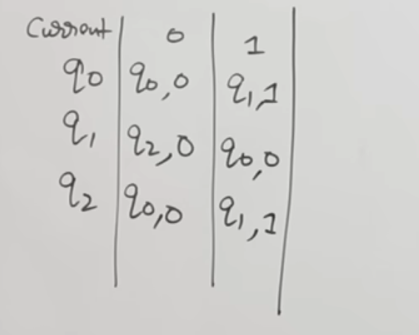 Current 0 1
q0 q0,0 q1,1
q1 q2,0 q0,0
q2 q0,0 q1,1